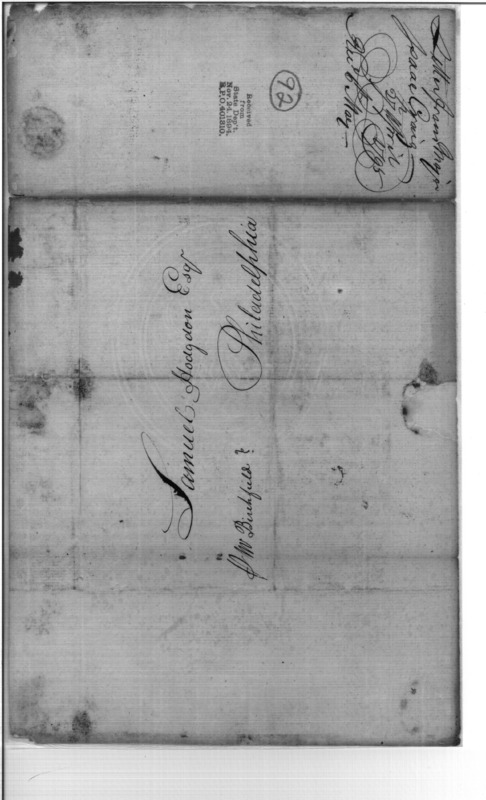 Letter from Majr
Isaac Craig
25th April
1795
Recd 6 May
92
Received
from
State Dep't.
Nov. 24, 1894,
R.P.O. 401810.
Samuel Hodgdon Esqr
Philadelphia
Mr Birchfield